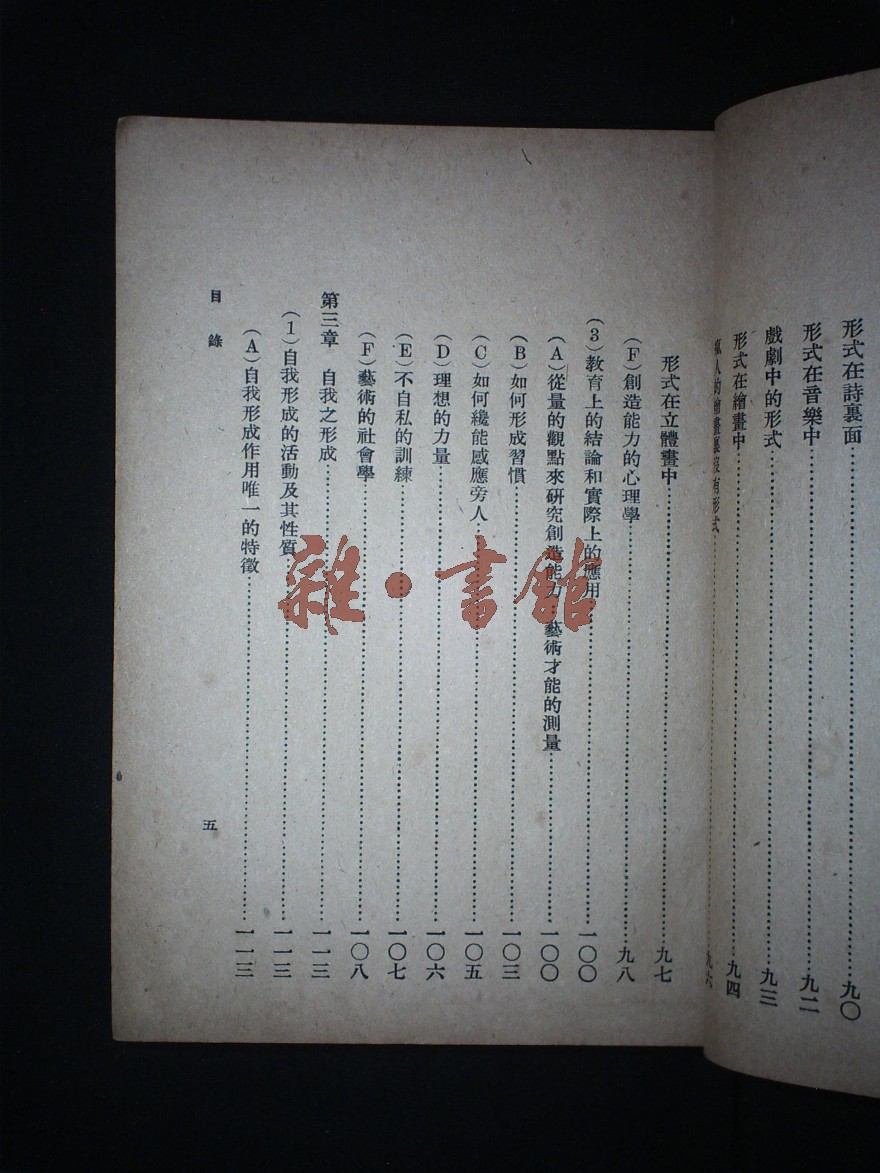 形式在詩裏面…………九〇
形式在音樂中…………九二
戲劇中的形式…………九三
形式在繪畫中…………九四
瘋人的繪畫裏沒有形式…………九六
形式在立體畫中…………九七
(F)創造能力的心理學…………九八
(3)教育上的結論和實際上的應用…………一〇〇
(A)從量的觀點來研究創造能力:藝術才能的測量…………一〇〇
(B)如何形成習慣…………一〇三
(C)如何纔能感應旁人…………一〇五
(D)理想的力量…………一〇六
(E)不自私的訓練…………一〇七
(F)藝術的社會學…………一〇八
第三章 自我之形成…………一一三
(1)自我形成的活動及其性質…………一一三
(A)自我形成作用唯一的特徵…………一一三
目錄 五
雜·書館